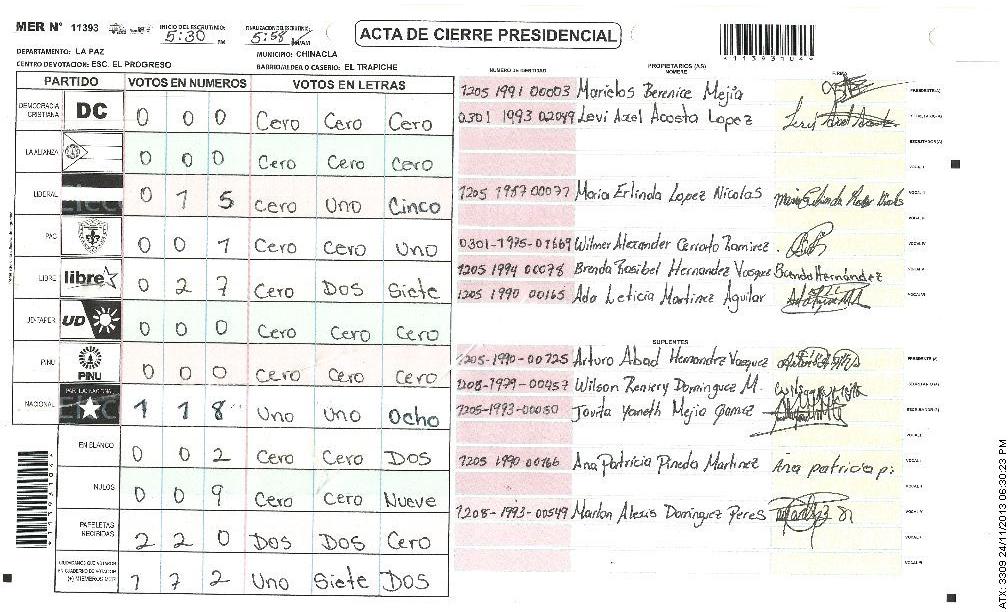 MER N° 11393
INICIO DEL ESCRUTINIO: 5:30 PM
FINALIZACION DEL ESCRUTINIO: 5:58
ACTA DE CIERRE PRESIDENCIAL
*11393104*
DEPARTAMENTO: LA PAZ
MUNICIPIO: CHINACLA
CENTRO DE VOTACION: ESC. EL PROGRESO
BARRIO/ALDEA O CASERIO: EL TRAPICHE
PARTIDO VOTOS EN NUMEROS VOTOS EN LETRAS
DEMOCRACIA CRISTIANA DC 0 0 0 Cero Cero Cero
LA ALIANZA 0 0 0 Cero Cero Cero
LIBERAL 0 1 5 Cero Uno Cinco
PAC 0 0 1 Cero Cero Uno
LIBRE libre 0 2 7 Cero DOS Siete
UD-FAPER UD 0 0 0 Cero Cero Cero
PINU PINU 0 0 0 Cero Cero Cero
NACIONAL 1 1 8 Uno Uno Ocho
EN BLANCO 0 0 2 Cero Cero DOS
NULOS 0 0 9 Cero Cero Nueve
PAPELETAS RECIBIDAS 2 2 0 DOS DOS Cero
CIUDADANOS QUE VOTARON EN CUADERNO DE VOTACION (+) MIEMBROS MER 1 7 2 Uno Siete DOS
NUMERO DE IDENTIDAD
PROPIETARIOS (AS)
NOMBRE
FIRMA
1205 1991 00003 Marielos Berenice Mejia PRESIDENTE(A)
0301 1993 02049 Levi Axel Acosta Lopez SECRETARIO(A)
ESCRUTADOR(A)
VOCAL I
1205 1987 00077 Maria Erlinda Lopez Nicolas
0301-1975-01669 Wilmer Alexander Cerrato Ramirez. VOCAL IV
1205 1994 00078 Brenda Rosibel Hernandez Vasquez Brenda Hernández VOCAL V
1205 1990 00165 Ada Leticia Martinez Aguilar VOCAL VI
SUPLENTES
1205-1990-00725 Arturo Abad Hernandez Vasquez PRESIDENTE(A)
1208-1979-00457 Wilson Reniery Dominguez M. SECRETARIO(A)
1205-1993-00050 Jovita Yaneth Mejia Gomez ESCRUTADOR(A)
1205 1990 00166 Ana Patricia Pineda Martinez Ana patricia p.
1208-1993-00549 Marlon Alexis Dominguez Peres
ATX: 3309 24/11/2013 06:30:23 PM